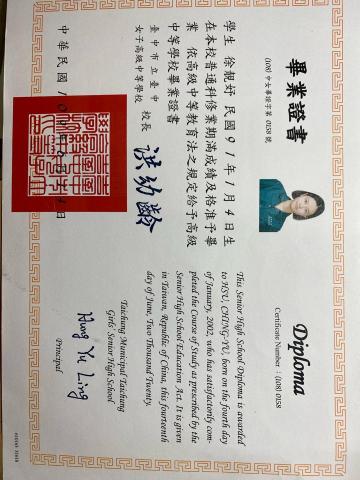 畢業證書
(108)中女畢證字第 0158 號
學生 徐靚妤 民國91年1月4日生
在本校普通科修業期滿成績及格准予畢
業 依高級中等教育法之規定給予高級
中等學校畢業證書
臺中市立臺中
女子高級中等學校 校長 洪幼齡
中華民國
Diploma
Certificate Number : (108) 0158
This Senior High School Diploma is awarded
to HSU, CHING-YU, born on the fourth day
of January, 2002, who has satisfactorily com-
pleted the Course of Study as prescribed by the
Senior High School Education Act. It is given
in Taiwan, Republic of China, this fourteenth
day of June, Two Thousand Twenty.
Taichung Municipal Taichung
Girls' Senior High School
Hung Yu Ling
Principal